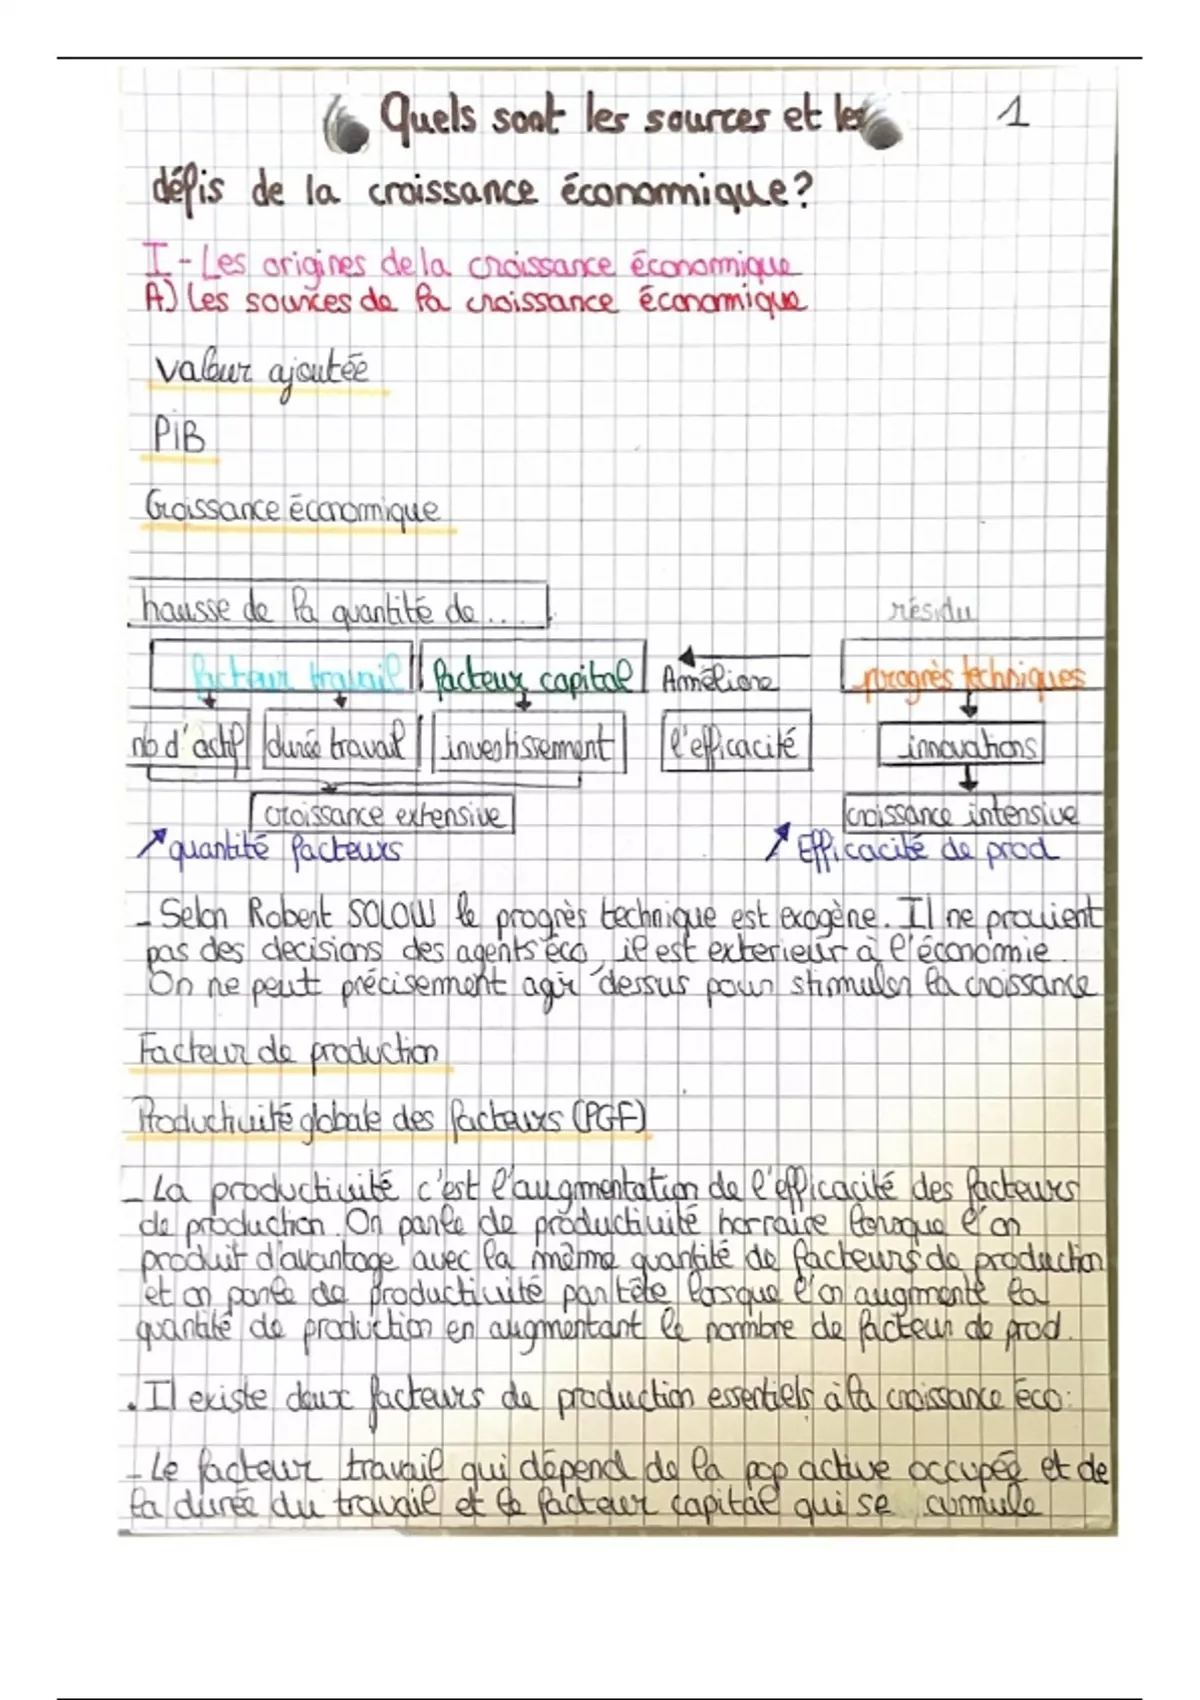 Quels sont les sources et les 1
défis de la croissance économique?
I - Les origines de la croissance économique
A) Les sources de la croissance économique
Valeur ajoutée
PIB
Croissance économique
hausse de la quantité de .... résidu
facteur travail facteur capital Améliore progrès techniques
nb d'actif durée travail investissement l'efficacité innovations
croissance extensive croissance intensive
↗ quantité facteurs ↗ Efficacité de prod
- Selon Robert SOLOW le progrès technique est exogène. Il ne provient
pas des decisions des agents éco, il est exterieur à l'économie.
On ne peut précisemment agir dessus pour stimuler la croissance
Facteur de production
Productivité globale des facteurs (PGF)
- La productivité c'est l'augmentation de l'efficacité des facteurs
de production. On parle de productivité horraire lorsque l'on
produit d'avantage avec la même quantité de facteurs de production
et on parle de productivité par tête lorsque l'on augmente la
quantité de production en augmentant le nombre de facteur de prod.
. Il existe deux facteurs de production essentiels à la croissance éco:
- Le facteur travail qui dépend de la pop active occupée et de
la durée du travail et le facteur capital qui se cumule